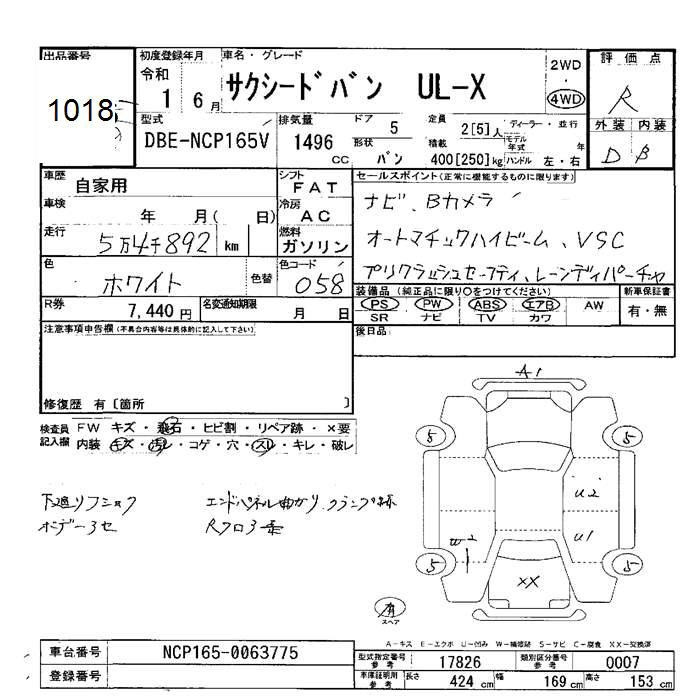 出品番号
1018
初度登録年月
令和
1 6 月
車名・グレード
サクシードバン UL-X
2WD
・
4WD
評価点
R
外装 内装
D B
型式
DBE-NCP165V
排気量
1496
CC
ドア
5
形状
バン
定員
2[5]人
積載
400[250]kg
ディーラー・並行
モデル年式
年
ハンドル 左・右
車歴
自家用
車検
年 月( 日)
走行
5万4千892 km
シフト
FAT
冷房
AC
燃料
ガソリン
セールスポイント(正常に機能するものに限ります)
ナビ、Bカメラ
オートマチックハイビーム、VSC
プリクラッシュセーフティ、レーンディパーチャ
色
ホワイト
色替
色コード
058
装備品(純正品に限り○をつけてください)
PS PW ABS エアB AW
SR ナビ TV カワ
新車保証書
有・無
R券
7,440 円
名変通知期限
月 日
後日品
注意事項申告欄(不具合内容等は具体的に記入して下さい)
修復歴 有〔箇所 〕
検査員
記入欄
FW キズ・飛石・ヒビ割・リペア跡・×要
内装 キズ・汚レ・コゲ・穴・スレ・キレ・破レ
下廻リフショク
ボデー3セ
エンドパネル曲がり クランプ跡
Rフロ3曲
A1
5
5
U2
U1
W2
5
5
XX
有
スペア
A-キズ E-エクボ U-凹み W-補修跡 S-サビ C-腐食 XX-交換済
車台番号
NCP165-0063775
登録番号
型式指定番号
参考
17826
類別区分番号
参考
0007
車庫証明用
参考
長さ 424 cm 幅 169 cm 高さ 153 cm